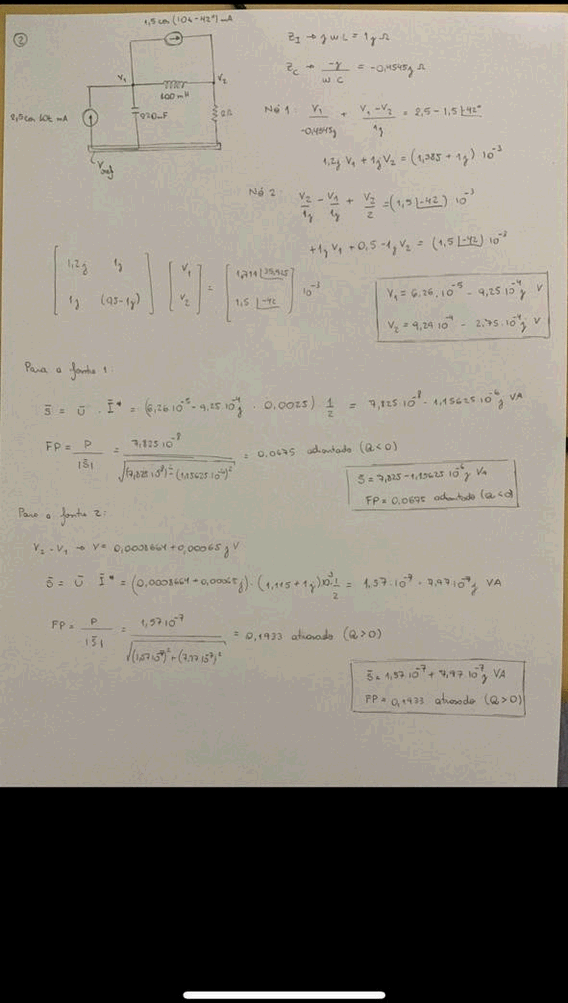 ②
1,5 cos(10t-42°) mA
V₁
V₂
100 mH
2Ω
2,5 cos 10t mA
Vref
Z_I → jωL = 1j Ω
Z_C → -j/ωC = -0,4545j Ω
Nó 1: V₁/-0,4545j + (V₁-V₂)/1j = 2,5 - 1,5∠-42°
1,2j V₁ + 1j V₂ = (1,385 + 1j) 10⁻³
Nó 2: V₂/1j - V₁/1j + V₂/2 = (1,5∠-42) 10⁻³
+1j V₁ + 0,5 - 1j V₂ = (1,5∠-42) 10⁻³
[1,2j 1j] [V₁] = [1,714∠35,925] 10⁻³
[1j (0,5-1j)] [V₂] [1,5∠-42]
V₁ = 6,26.10⁻⁵ - 9,25 10⁻⁴j V
V₂ = 9,29 10⁻⁴ - 2,75.10⁻⁴j V
Para a fonte 1:
S̄ = Ū . Ī* = (6,26 10⁻⁵ - 9,25 10⁻⁴j . 0,0025) 1/2 = 7,825.10⁻⁸ - 1,15625 10⁻⁶j VA
FP = P/|S̄| = 7,825 10⁻⁸/√((7,825 10⁻⁸)² - (1,15625 10⁻⁶)²) = 0,0675 adiantado (Q<0)
S̄ = 7,825 - 1,15625 10⁻⁶j VA
FP = 0,0675 adiantado (Q<0)
Para a fonte 2:
V₂ - V₁ → V = 0,0008664 + 0,00065j V
S̄ = Ū Ī* = (0,0008664 + 0,00065j) . (1,115 + 1j)10⁻³ 1/2 = 1,57 10⁻⁷ + 7,97 10⁻⁷j VA
FP = P/|S̄| = 1,57 10⁻⁷/√((1,57 10⁻⁷)² + (7,97 10⁻⁷)²) = 0,1933 atrasado (Q>0)
S̄ = 1,57 10⁻⁷ + 7,97 10⁻⁷j VA
FP = 0,1933 atrasado (Q>0)